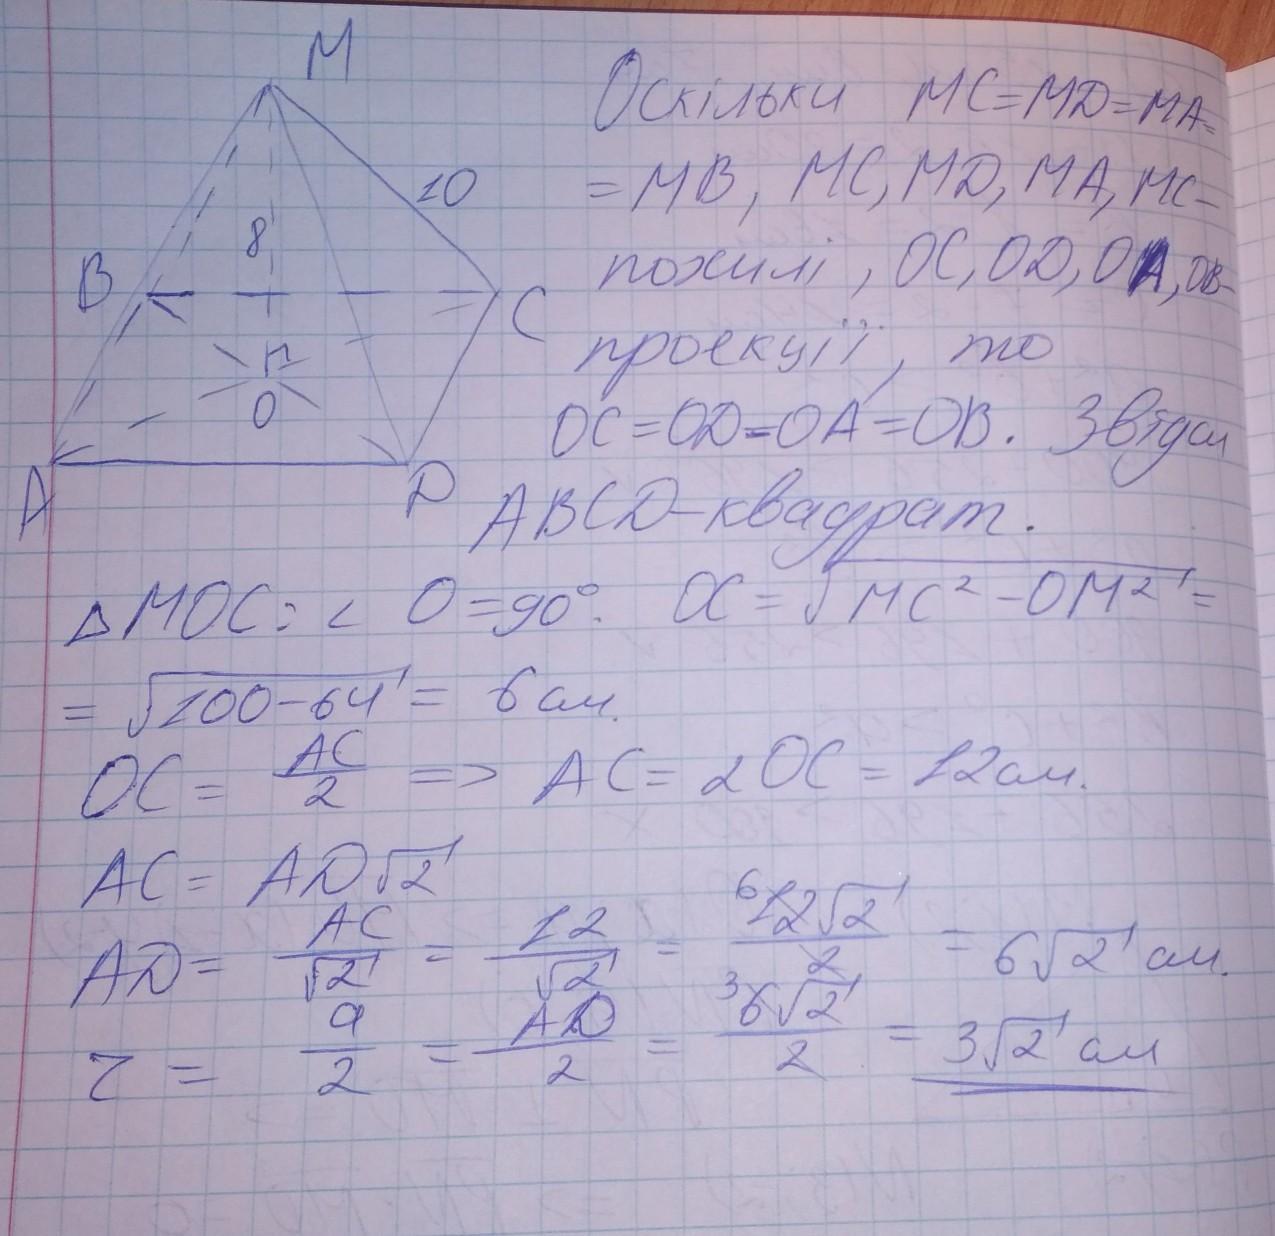 M
10
8
B
C
O
A
D
Оскільки MC=MD=MA=
=MB, MC, MD, MA, MC-
похилі, OC, OD, OA, OB-
проекції, то
OC=OD=OA=OB. Звідси
ABCD-квадрат.
△MOC: ∠ O=90°. OC = √(MC² - OM²) =
= √(100-64) = 6 см.
OC = AC/2 => AC = 2OC = 12 см.
AC = AD√2
AD = AC/√2 = 12/√2 = 12√2/2 = 6√2 см.
r = a/2 = AD/2 = 6√2/2 = 3√2 см